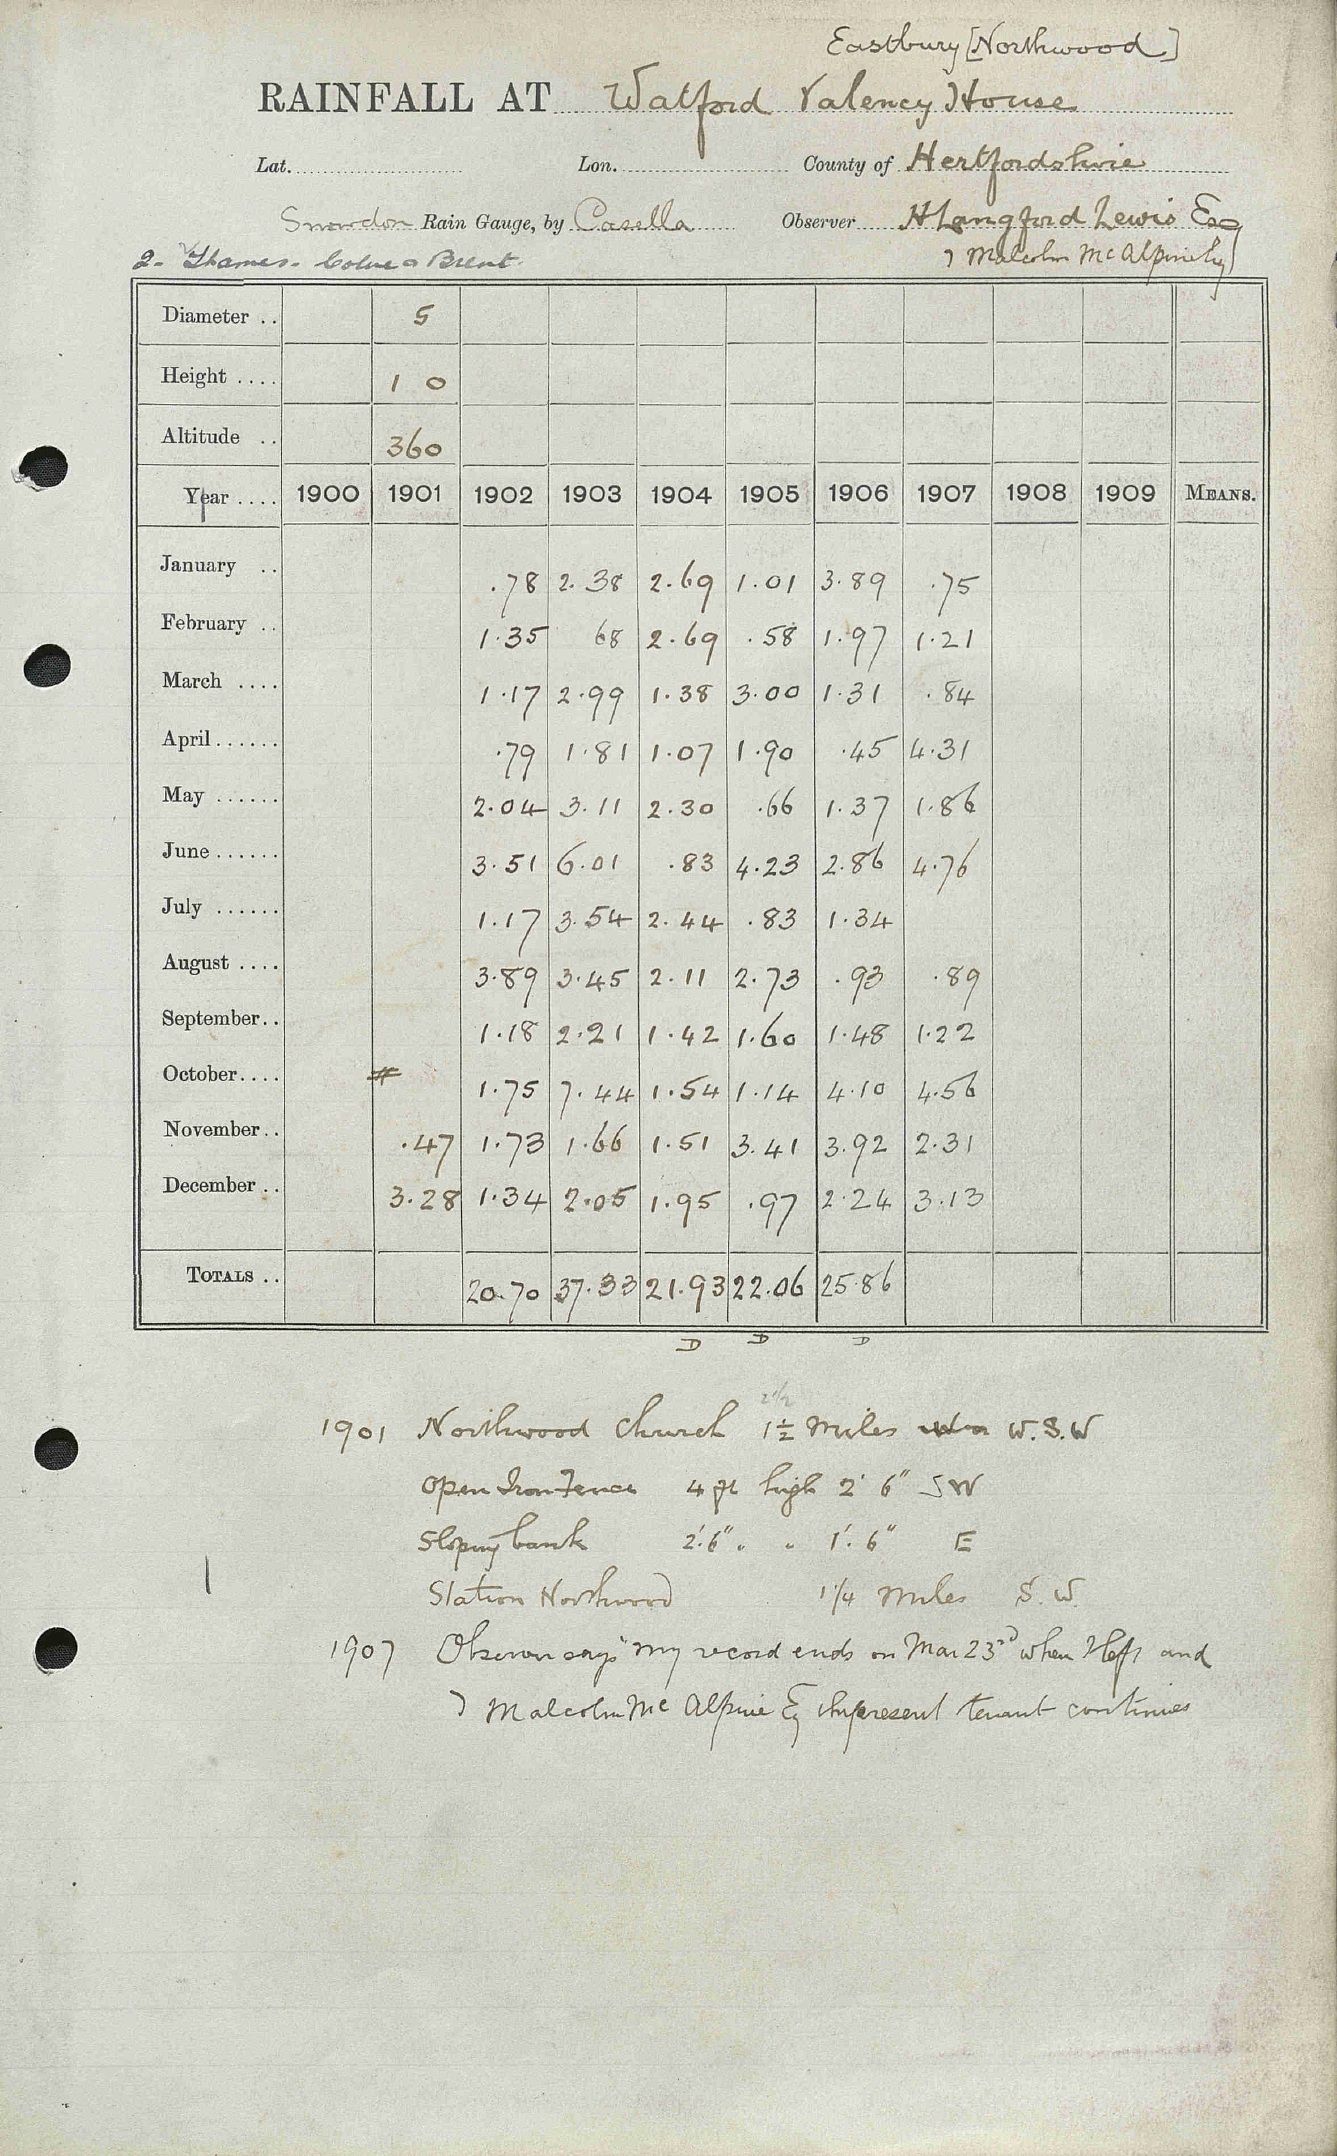 Eastbury [Northwood]
RAINFALL AT Watford Valency House
Lat. Lon. County of Hertfordshire
Snowdon Rain Gauge, by Casella Observer H Langford Lewis Esq
2- Thames. Colne & Brent. Malcolm McAlpine Esq
Diameter .. 5
Height .... 1 0
Altitude .. 360
Year .... 1900 1901 1902 1903 1904 1905 1906 1907 1908 1909 MEANS.
January .. .78 2.38 2.69 1.01 3.89 .75
February .. 1.35 68 2.69 .58 1.97 1.21
March .... 1.17 2.99 1.38 3.00 1.31 .84
April ...... .79 1.81 1.07 1.90 .45 4.31
May ...... 2.04 3.11 2.30 .66 1.37 1.86
June ...... 3.51 6.01 .83 4.23 2.86 4.76
July ...... 1.17 3.54 2.44 .83 1.34
August .... 3.89 3.45 2.11 2.73 .93 .89
September .. 1.18 2.21 1.42 1.60 1.48 1.22
October .... # 1.75 7.44 1.54 1.14 4.10 4.56
November .. .47 1.73 1.66 1.51 3.41 3.92 2.31
December .. 3.28 1.34 2.05 1.95 .97 2.24 3.13
TOTALS .. 20.70 37.33 21.93 22.06 25.86
D D D
2 1/2
1901 Northwood Church 1½ Miles W.S.W
Open Iron Fence 4 ft high 2' 6" SW
Sloping bank 2'.6" " " 1'. 6" E
Station Northwood 1¼ Miles S.W.
1907 Observer says "my record ends on Mar 23rd when I left and
Malcolm McAlpine Esq the present tenant continues